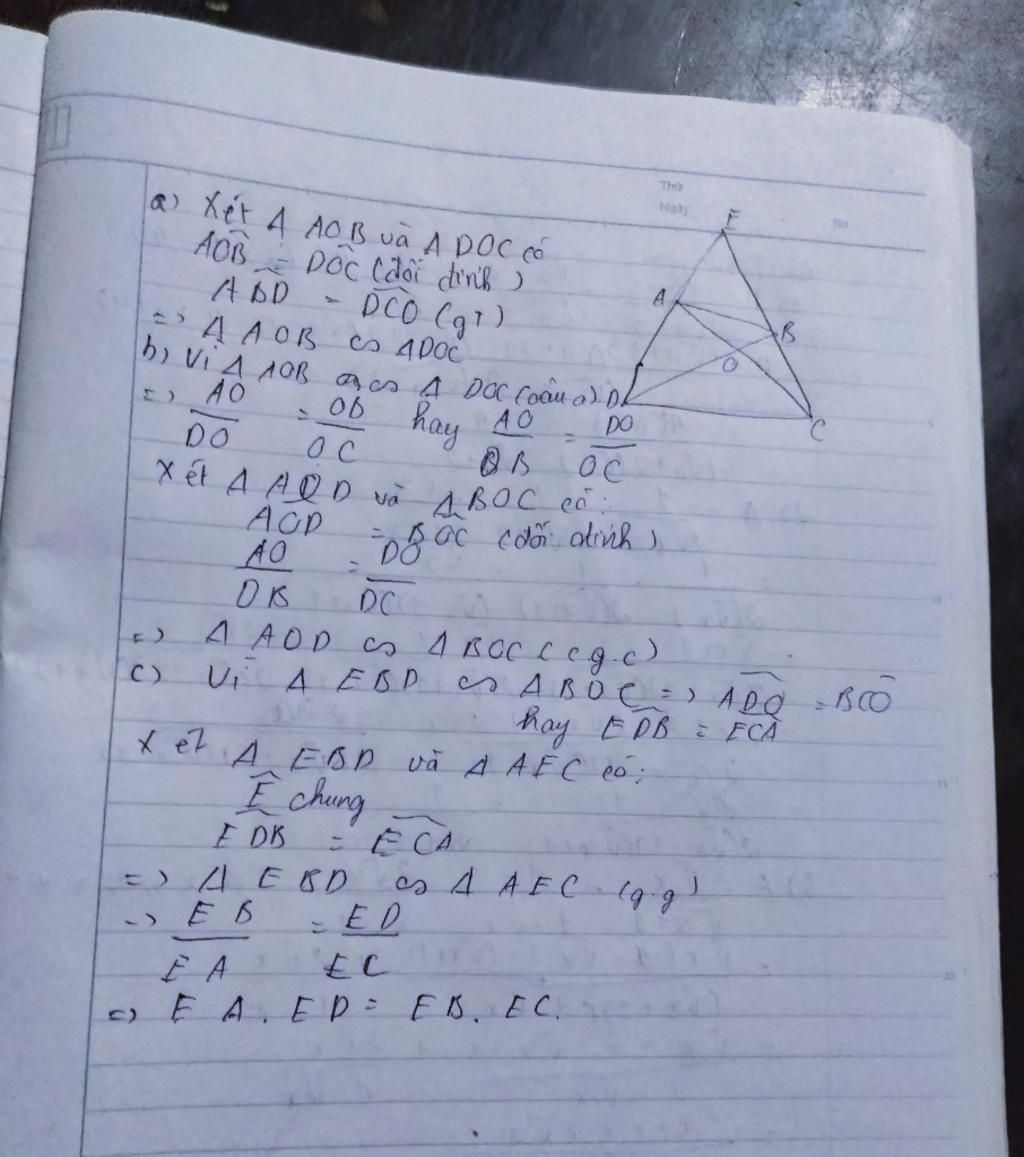 Thứ
Ngày
No
E
A
B
O
D
C
a) Xét Δ AOB và Δ DOC có
AOB = DOC (đối đỉnh)
ABD = DCO (gT)
=> Δ AOB ∽ ΔDOC
b) Vì Δ AOB ∽ Δ DOC (câu a)
=> AO/DO = OB/OC hay AO/OB = DO/OC
Xét Δ AOD và Δ BOC có:
AOD = BOC (đối đỉnh)
AO/OB = DO/OC
=> Δ AOD ∽ Δ BOC (c g.c)
c) Vì Δ EBD ∽ Δ BOC => ADO = BCO
hay EDB = ECA
Xét Δ EBD và Δ AEC có:
E chung
EDB = ECA
=> Δ EBD ∽ Δ AEC (g.g)
=> EB/EA = ED/EC
=> EA. ED = EB. EC.